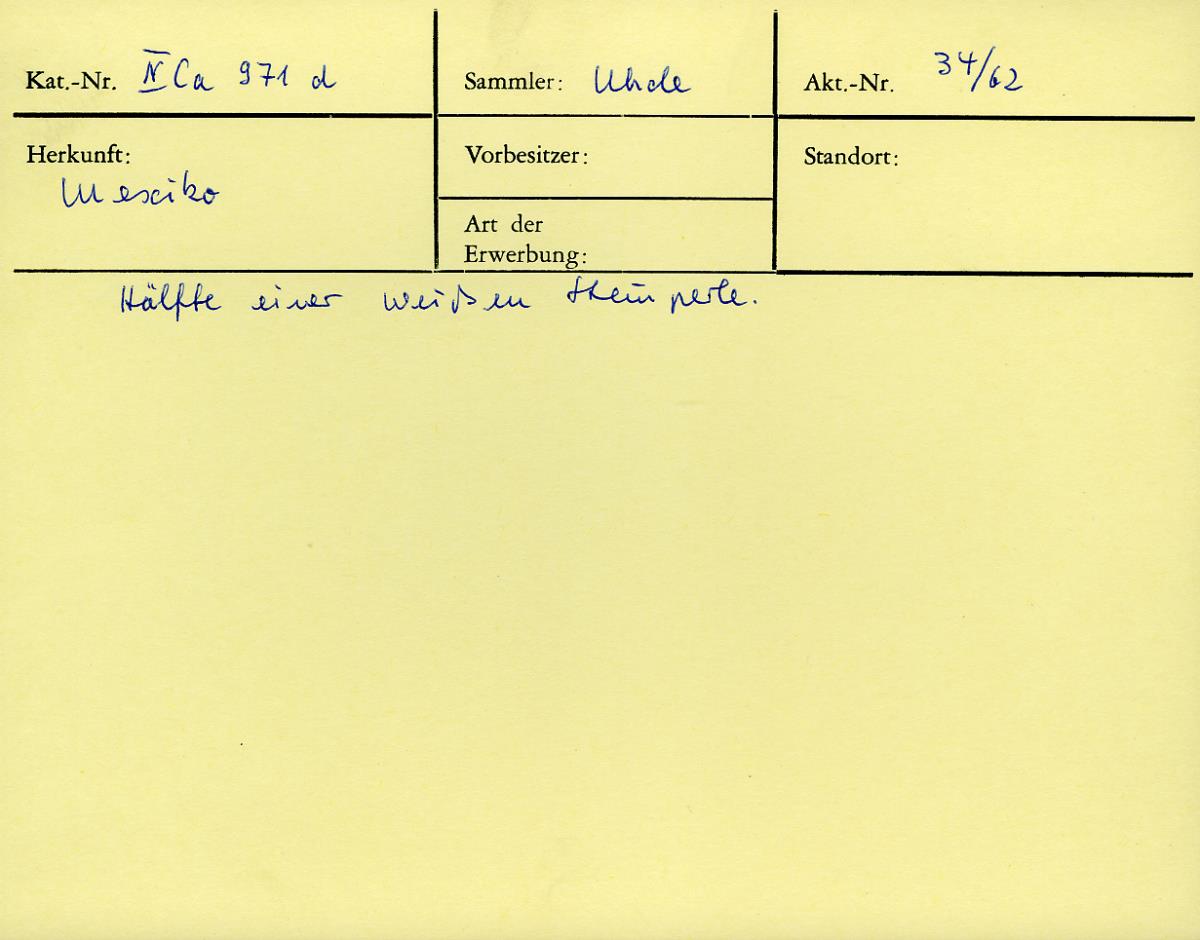 Kat.-Nr. IV Ca 971 d
Sammler: Uhde
Akt.-Nr. 34/62
Herkunft:
Mexiko
Vorbesitzer:
Art der
Erwerbung:
Standort:
Hälfte einer weißen Steinperle.